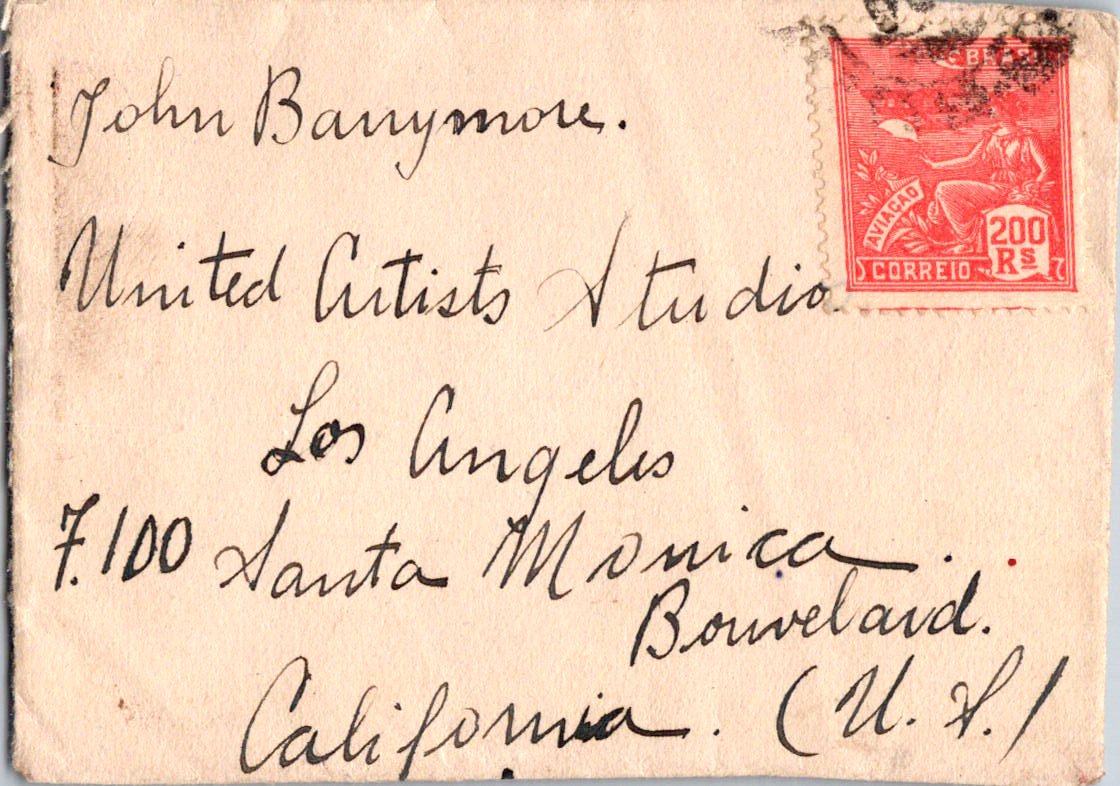 John Barrymore.
BRASIL
AVIACAO
200
RS
CORREIO
United Artists Studio
Los Angeles
7.100 Santa Monica.
Bouvelard.
California. (U.S.)